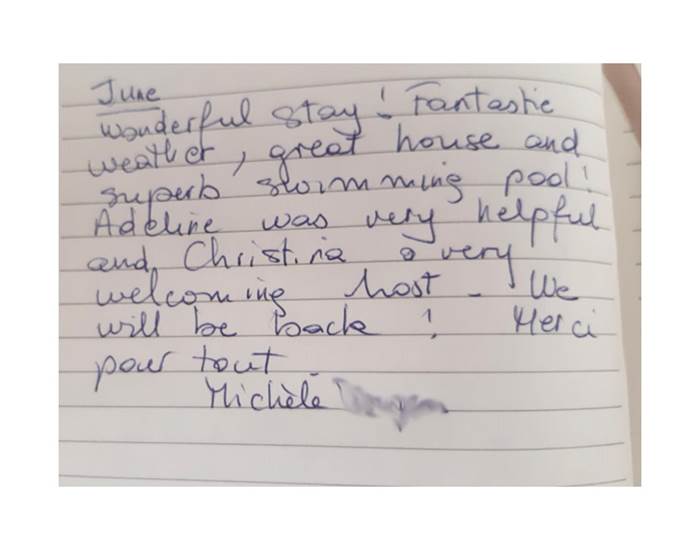 June
wonderful stay! Fantastic
weather, great house and
superb swimming pool!
Adeline was very helpful
and Christina a very
welcoming host - We
will be back ! Merci
pour tout.
Michèle